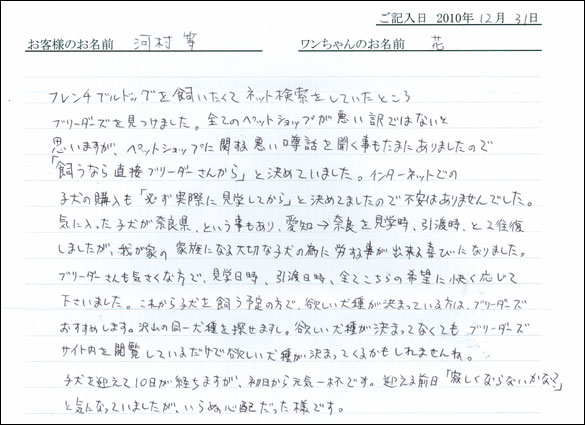 ご記入日 2010年 12月 31日
お客様のお名前 河村 等 ワンちゃんのお名前 花
フレンチブルドッグを飼いたくてネット検索をしていたところ
ブリーダーズを見つけました。全てのペットショップが悪い訳ではないと
思いますが、ペットショップに関する悪い噂話を聞く事もたまにありましたので
「飼うなら直接ブリーダーさんから」と決めていました。インターネットでの
子犬の購入も「必ず実際に見学してから」と決めてましたので不安はありませんでした。
気に入った子犬が奈良県、という事もあり、愛知→奈良を見学時、引渡時、と2往復
しましたが、我が家の家族になる大切な子犬の為に労する事が出来る喜びになりました。
ブリーダーさんも気さくな方で、見学日時、引渡日時、全てこちらの希望に快く応じて
下さいました。これから子犬を飼う予定の方で、欲しい犬種が決まっている方は、ブリーダーズで
おすすめします。沢山の同一犬種を探せますし。欲しい犬種が決まってなくてもブリーダーズ
サイト内を閲覧しているだけで欲しい犬種が決まってくるかもしれませんね。
子犬を迎えて10日が経ちますが、初日から元気一杯です。迎える前日「寂しくならないかなぁ?」
と気になっていましたが、いらぬ心配だった様です。